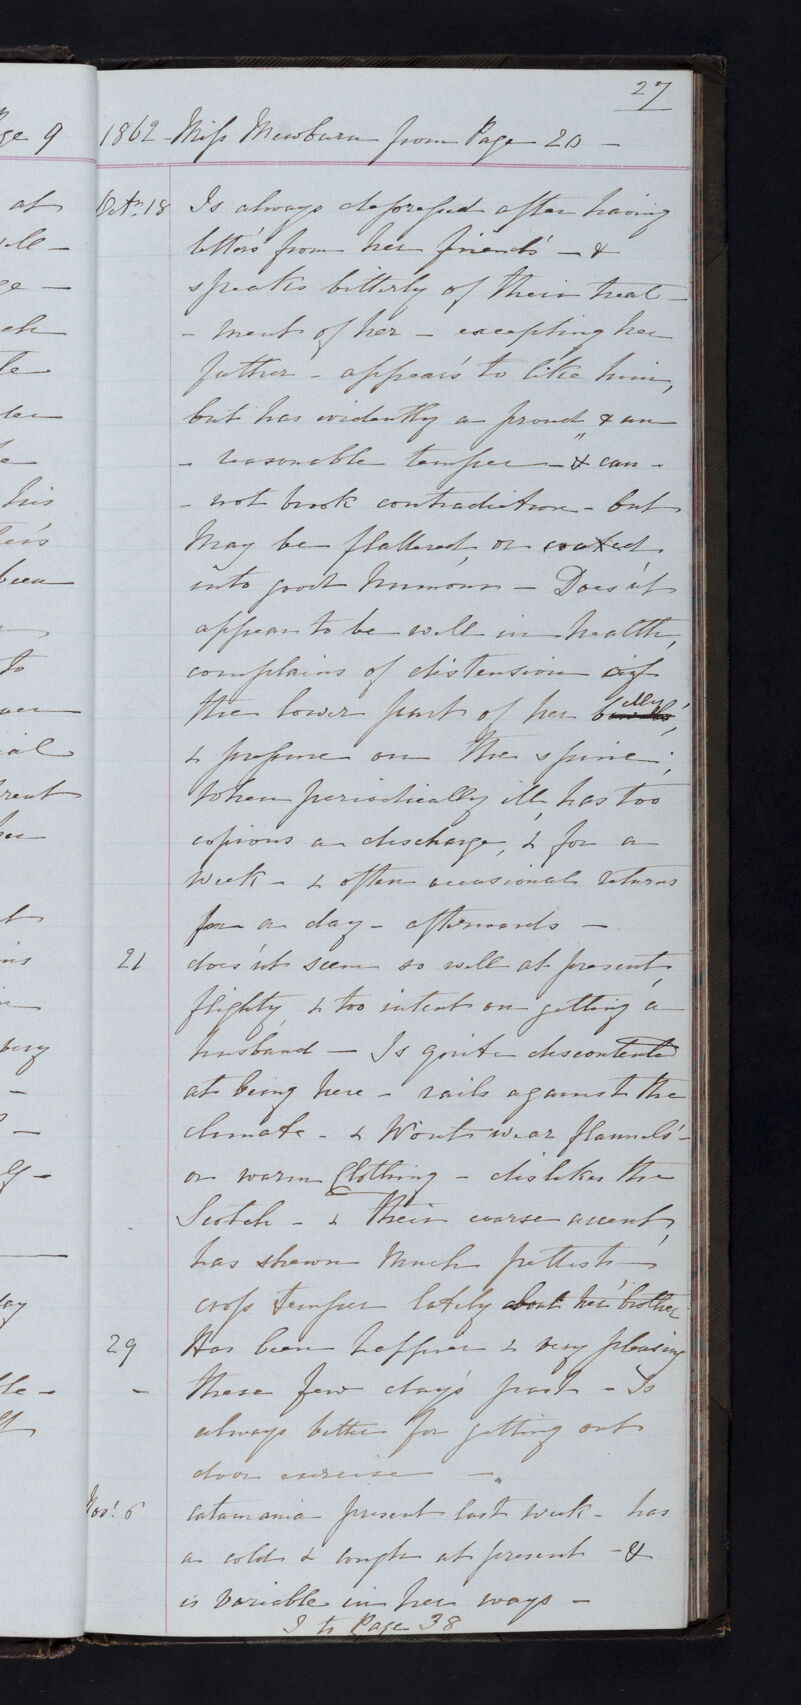 27
1862 - Miss Mewburn from Page 20 -
Octr. 18 Is always depressed after having
letters from her friends - &
speaks bitterly of their treat -
- ment of her - excepting her
father - appears to like him,
but has evidently a proud & un
- reasonable temper - & can -
- not brook contradiction - but
may be flattered, or coaxed
into good humour - Does'nt
appear to be well in health,
complains of distension of
the lower part of her belly,
& pressure on the spine;
when periodically ill, has too
copious a discharge, & for a
week - & often occasional returns
for a day - afterwards -
21 does'nt seem so well at present,
flighty, & too intent on getting a
husband - Is quite discontented
at being here - rails against the
climate - & Won't wear flannels -
or warm Clothing - dislikes the
Scotch - & their coarse accent,
has shewn much pettish -
cross temper lately about her brother
29 Has been happier & very pleasing
- these few days past - Is
always better for getting out
door exercise -
Novr. 6 catamania present last week - has
a cold & cough at present - &
is variable in her ways -
to Page 38
ge 9
at
ge -
ch
his
been
to
ial